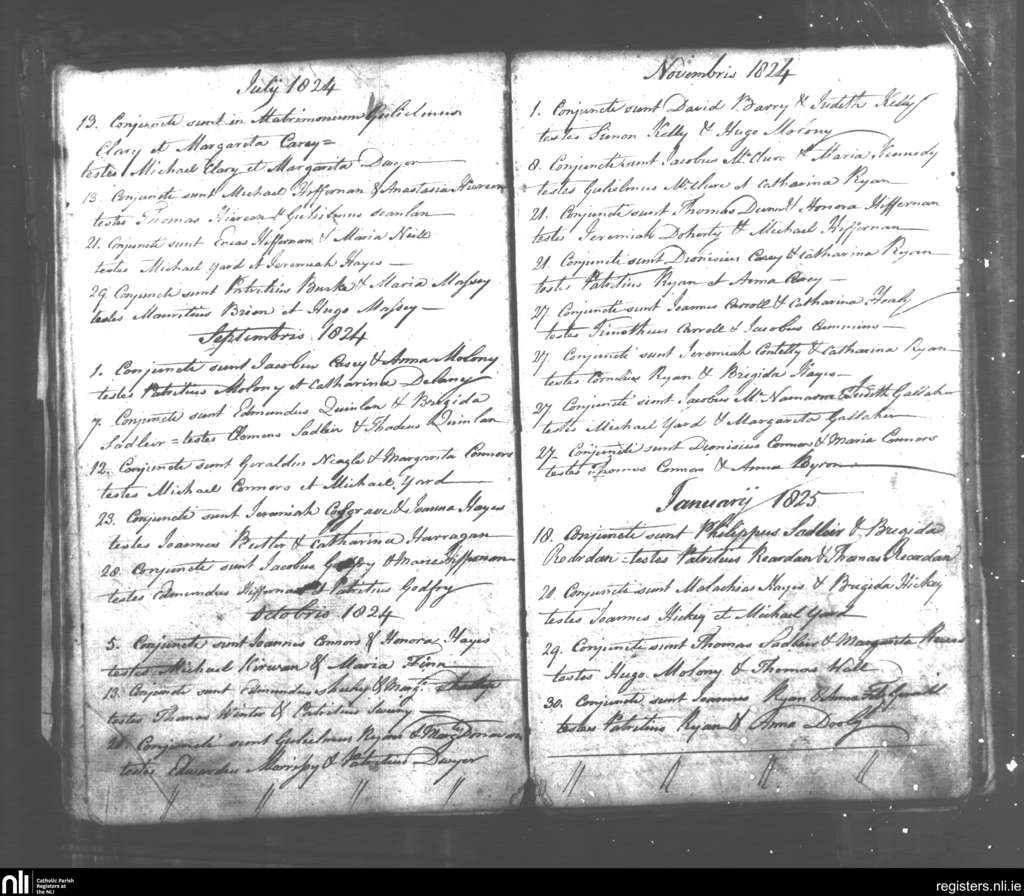 July 1824
13. Conjuncti sunt in Matrimonium Gulielmus
Clary et Margarita Carey=
testes Michael Clary et Margarita Dwyer
13. Conjuncti sunt Michael Heffernan & Anastasia
testes Thomas & Gulielmus Scanlan
21. Conjuncti sunt Eneas Heffernan & Maria Neill
testes Michael Yard et Jeremiah Hayes
29. Conjuncti sunt Patritius Burke & Maria Massey
testes Mauritius Brien et Hugo Massey
Septembris 1824
1. Conjuncti sunt Jacobus Casey & Anna Molony
testes Patritius Molony et Catharina Delaney
7. Conjuncti sunt Edmundus Quinlan & Brigida
Sadleir = testes Clemens Sadleir & Thadeus Quinlan
12. Conjuncti sunt Geraldus Neagle & Margarita Connors
testes Michael Connors et Michael Yard
23. Conjuncti sunt Jeremiah Cosgrave & Joanna Hayes
testes Joannes Butler & Catharina Harragan
28. Conjuncti sunt Jacobus Godfry & Maria Heffernan
testes Edmundus Heffernan & Patritius Godfry
Octobris 1824
5. Conjuncti sunt Joannes Connors & Honora Hayes
testes Michael Kirwan & Maria Flinn
13. Conjuncti sunt Edmundus Sheehy & Margt.
testes Thomas Winter & Patritius Sweeny
20. Conjuncti sunt Gulielmus Ryan & Margt. Donovan
testes Edwardus Morrissy & Patritius Dwyer
Novembris 1824
1. Conjuncti sunt David Barry & Judith Kelly
testes Simon Kelly & Hugo Molony
8. Conjuncti sunt Jacobus McClure & Maria Kennedy
testes Gulielmus McClure et Catharina Ryan
21. Conjuncti sunt Thomas & Honora Heffernan
testes Jeremiah Doherty & Michael Heffernan
21. Conjuncti sunt Dionisius Casey & Catharina Ryan
testes Patritius Ryan et Anna Casey
27. Conjuncti sunt Joannes Carroll & Catharina
testes Timotheus Carroll & Jacobus Cummins
27. Conjuncti sunt Jeremiah Costelly & Catharina Ryan
testes Cornelius Ryan & Brigida Hayes
27. Conjuncti sunt Jacobus McNamara & Judith Gallaher
testes Michael Yard & Margarita Gallaher
27. Conjuncti sunt Dionisius Connors & Maria Connors
testes Thomas Connors & Anna Byron
Januarij 1825
18. Conjuncti sunt Philippus Sadleir & Brigida
Reardan = testes Patritius Reardan & Thomas Reardan
20. Conjuncti sunt Malachias Hayes & Brigida Hickey
testes Joannes Hickey et Michael Yard
29. Conjuncti sunt Thomas Sadleir & Margarita
testes Hugo Molony & Thomas Wall
30. Conjuncti sunt Joannes Ryan & Anna Fitz Gerald
testes Patritius Ryan & Anna Dooly
nli
Catholic Parish
Registers at
the NLI
registers.nli.ie